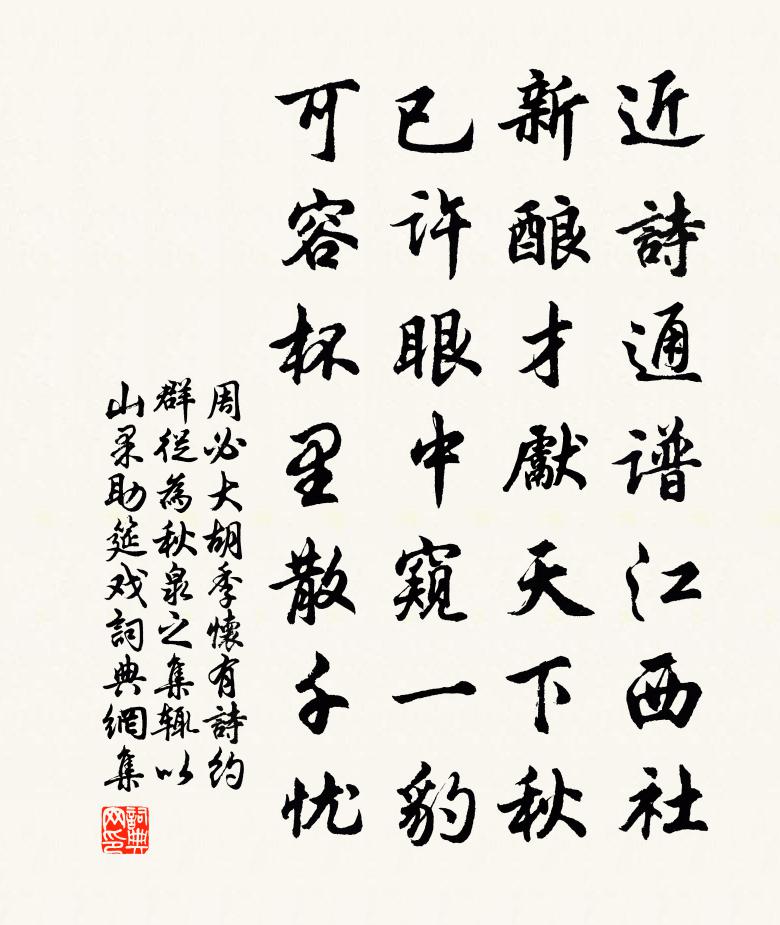 近詩通谱江西社
新酿才獻天下秋
已许眼中窺一豹
可容杯里散千忧
周必大胡季懷有詩約
群從為秋泉之集辄以
山果助筵戏詞典網集
詞典
网印